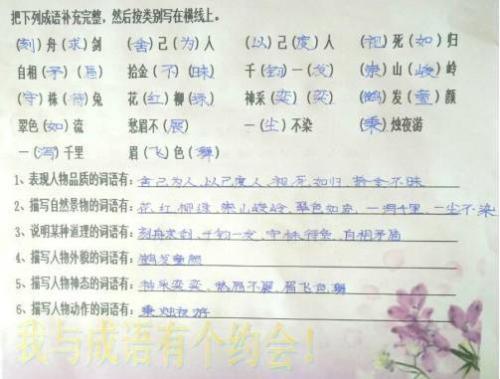 把下列成语补充完整，然后按类别写在横线上。
(刻)舟(求)剑 (舍)己(为)人 (以)己(度)人 (视)死(如)归
自相(矛)(盾) 拾金(不)(昧) 千(钧)一(发) (崇)山(峻)岭
(守)株(待)兔 花(红)柳(绿) 神采(奕)(奕) (鹤)发(童)颜
翠色(如)流 愁眉不(展) 一(尘)不染 (秉)烛夜游
一(泻)千里 眉(飞)色(舞)
1、表现人物品质的词语有：舍己为人、以己度人、视死如归、拾金不昧
2、描写自然景物的词语有：花红柳绿、崇山峻岭、翠色如流、一泻千里、一尘不染
3、说明某种道理的词语有：刻舟求剑、千钧一发、守株待兔、自相矛盾
4、描写人物外貌的词语有：鹤发童颜
5、描写人物神态的词语有：神采奕奕、愁眉不展、眉飞色舞
6、描写人物动作的词语有：秉烛夜游
我与成语有个约会！